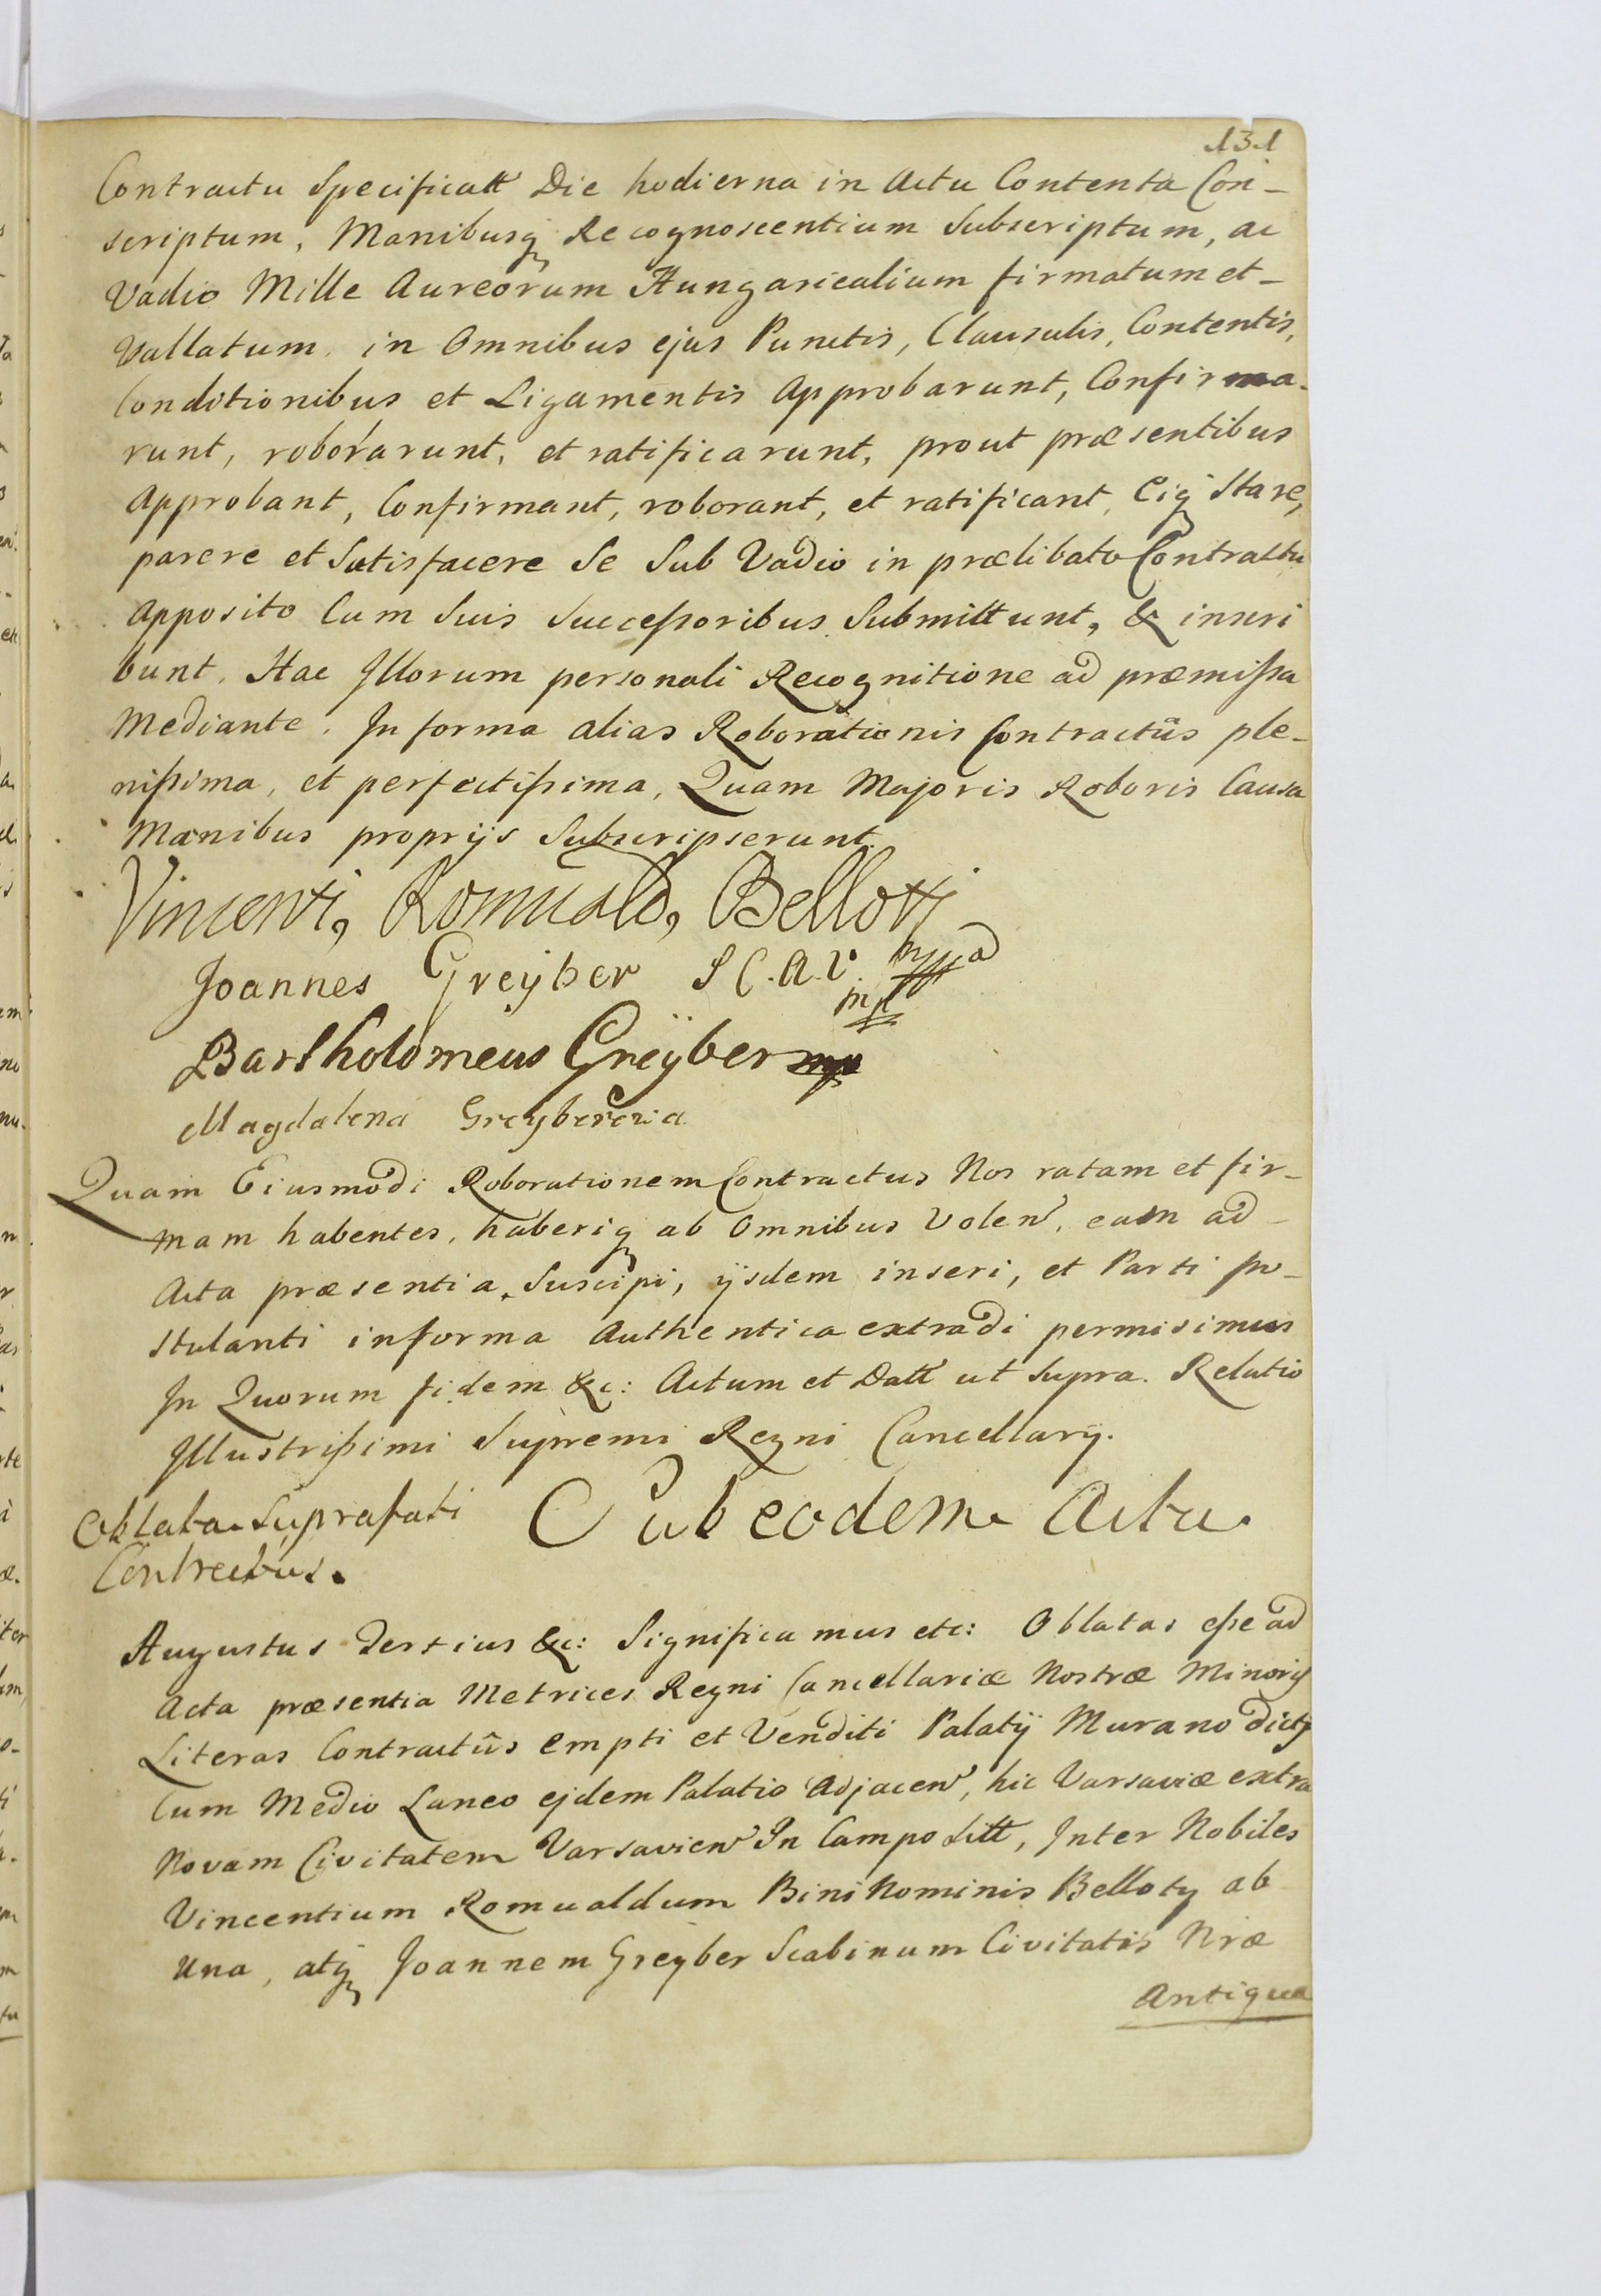 131
Contractu Specificatt Die hodierna in Actu Contenta Con-
scriptum, Manibusq Recognoscentium Subscriptum, ac
Vadio Mille Aureorum Hungaricalium firmatum et-
Vallatum, in Omnibus ejus Punctis, Clausulis, Contentis,
Conditionibus et Ligamentis Approbarunt, Confirma-
runt, roborarunt, et ratificarunt, prout præsentibus
Approbant, Confirmant, roborant, et ratificant, Eiq Stare,
parere et Satisfacere Se Sub Vadio in prælibato Contractu
Apposito Cum Suis Successoribus Submittunt, & inscri
bunt. Hac Illorum personali Recognitione ad præmissa
Mediante. In forma alias Roborationis Contractûs ple-
nissima, et perfectissima, Quam Majoris Roboris Causa
Manibus proprijs Subscripserunt.
Vincenti, Romuald, Bellotti
Joannes Greyber S C. A. V. mppa
mp
Bartholomeus Greÿber mp
Magdalena Greyberowa
Quam Eiusmodi Roborationem Contractus Nos ratam et fir-
mam habentes, haberiq ab Omnibus Volen, eam ad
Acta præsentia Suscipi, ijsdem inseri, et Parti po-
stulanti informa Authentica extradi permisimus
In Quorum fidem &c: Actum et Datt ut Supra. Relatio
Illustrissimi Supremi Regni Cancellarij.
Oblata Suprafati
Contractus.
Sub eodem Actu
Augustus Tertius &c: Significamus etc: Oblatas esse ad
Acta præsentia Metrices Regni Cancellariæ Nostræ Minoris
Literas Contractûs Empti et Venditi Palatij Murano dicti
Cum Medio Laneo ejdem Palatio Adjacen, hic Varsaviæ extra
Novam Civitatem Varsavien In Campo Sitt, Inter Nobiles
Vincentium Romualdum Bini Nominis Belloty ab
Una, atq Joannem Greyber Scabinum Civitatis Nræ
Antiqua